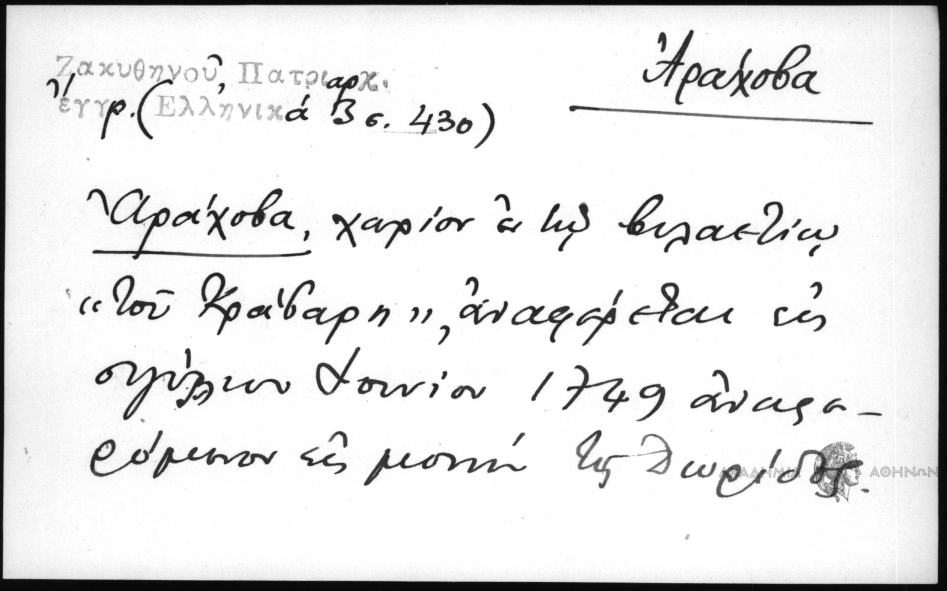 Ἀράχοβα
Ζακυθηνοῦ, Πατριαρχ.
ἔγγρ. (Ἑλληνικά 3 σ. 430)
Ἀράχοβα, χωρίον ἐν τῷ βιλαετίῳ
«τοῦ Κράβαρη», ἀναφέρεται εἰς
σιγίλλιον Ἰουνίου 1749 ἀναφε-
ρόμενον εἰς μονὴν τῆς Δωρίδος.
ΑΚΑΔΗΜΙΑ ΑΘΗΝΩΝ